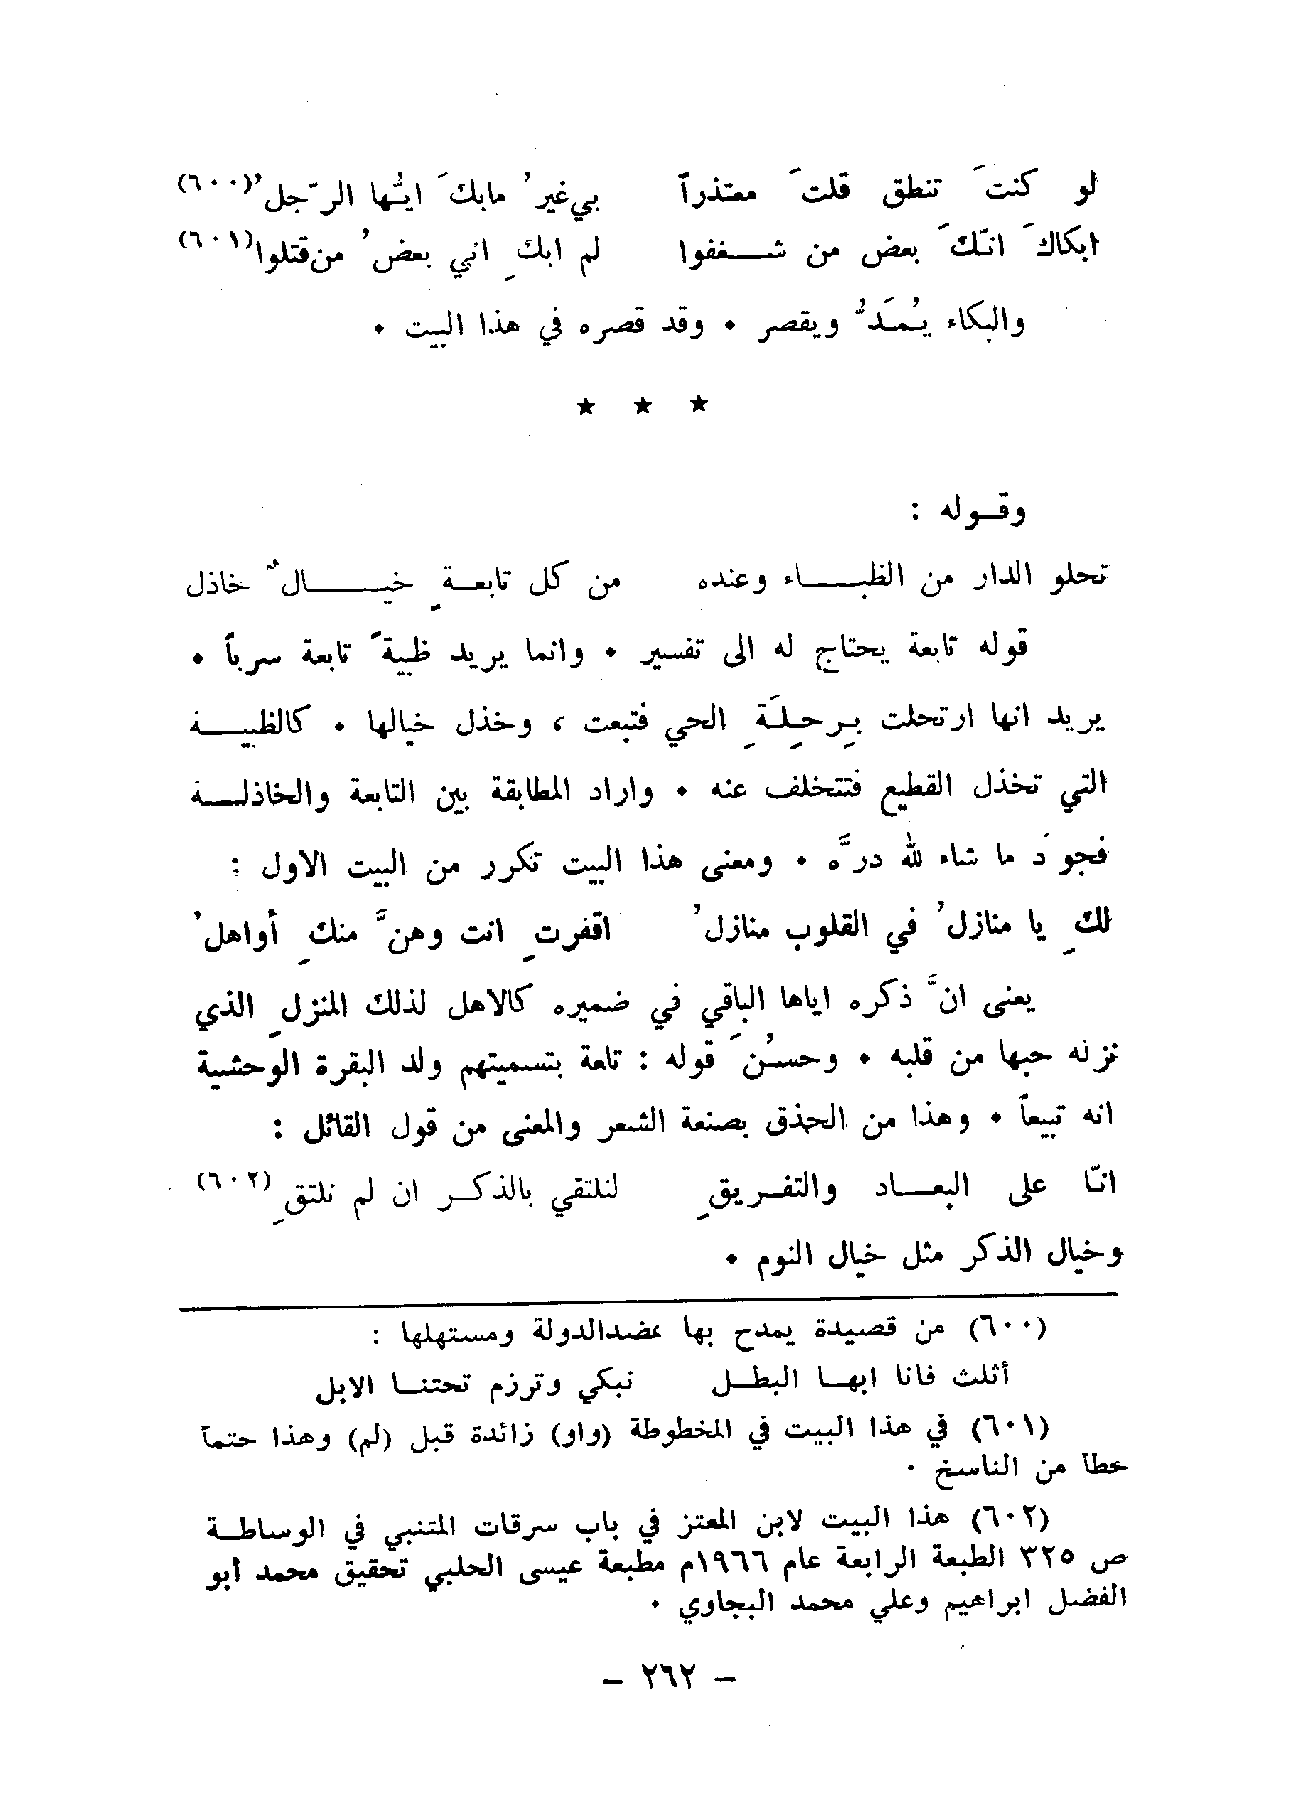 لو كنتَ تنطق قلتَ معتذراً بي غيرُ مابكَ ايُّها الرّجلُ(٦٠٠)
ابكاكَ انّكَ بعض من شــغفوا لم ابكِ اني بعضُ من قتلوا(٦٠١)
والبكاء يُمَدُّ ويقصر . وقد قصره في هذا البيت .
★ ★ ★
وقــوله :
تحلو الدار من الظبــاء وعنده من كل تابعــةٍ خيــــالٌ خاذل
قوله تابعة يحتاج له الى تفسير . وانما يريد ظبيةً تابعة سرباً .
يريد انها ارتحلت بِرحِلَةِ الحي فتبعت ، وخذل خيالها . كالظبيــة
التي تخذل القطيع فتتخلف عنه . واراد المطابقة بين التابعة والخاذلــة
فجوَد ما شاء لله درَّه . ومعنى هذا البيت تكرر من البيت الاول :
لكِ يا منازلُ في القلوب منازلُ اقفرتِ انت وهنَّ منكِ أواهلُ
يعنى انَّ ذكره اياها الباقي في ضميره كالاهل لذلك المنزلِ الذي
نزله حبها من قلبه . وحسُنَ قوله : تابعة بتسميتهم ولد البقرة الوحشية
انه تبيعاً . وهذا من الحذق بصنعة الشعر والمعنى من قول القائل :
انّا على البعــاد والتفــريقِ لنلتقي بالذكــر ان لم نلتقِ(٦٠٢)
وخيال الذكر مثل خيال النوم .
(٦٠٠) من قصيدة يمدح بها عضدالدولة ومستهلها :
أثلث فانا ايهــا البطــل نبكي وترزم تحتنــا الابل
(٦٠١) في هذا البيت في المخطوطة (واو) زائدة قبل (لم) وهذا حتماً
خطأ من الناسخ .
(٦٠٢) هذا البيت لابن المعتز في باب سرقات المتنبي في الوساطــة
ص ٣٢٥ الطبعة الرابعة عام ١٩٦٦م مطبعة عيسى الحلبي تحقيق محمد أبو
الفضل ابراهيم وعلي محمد البجاوي .
– ٢٦٢ –